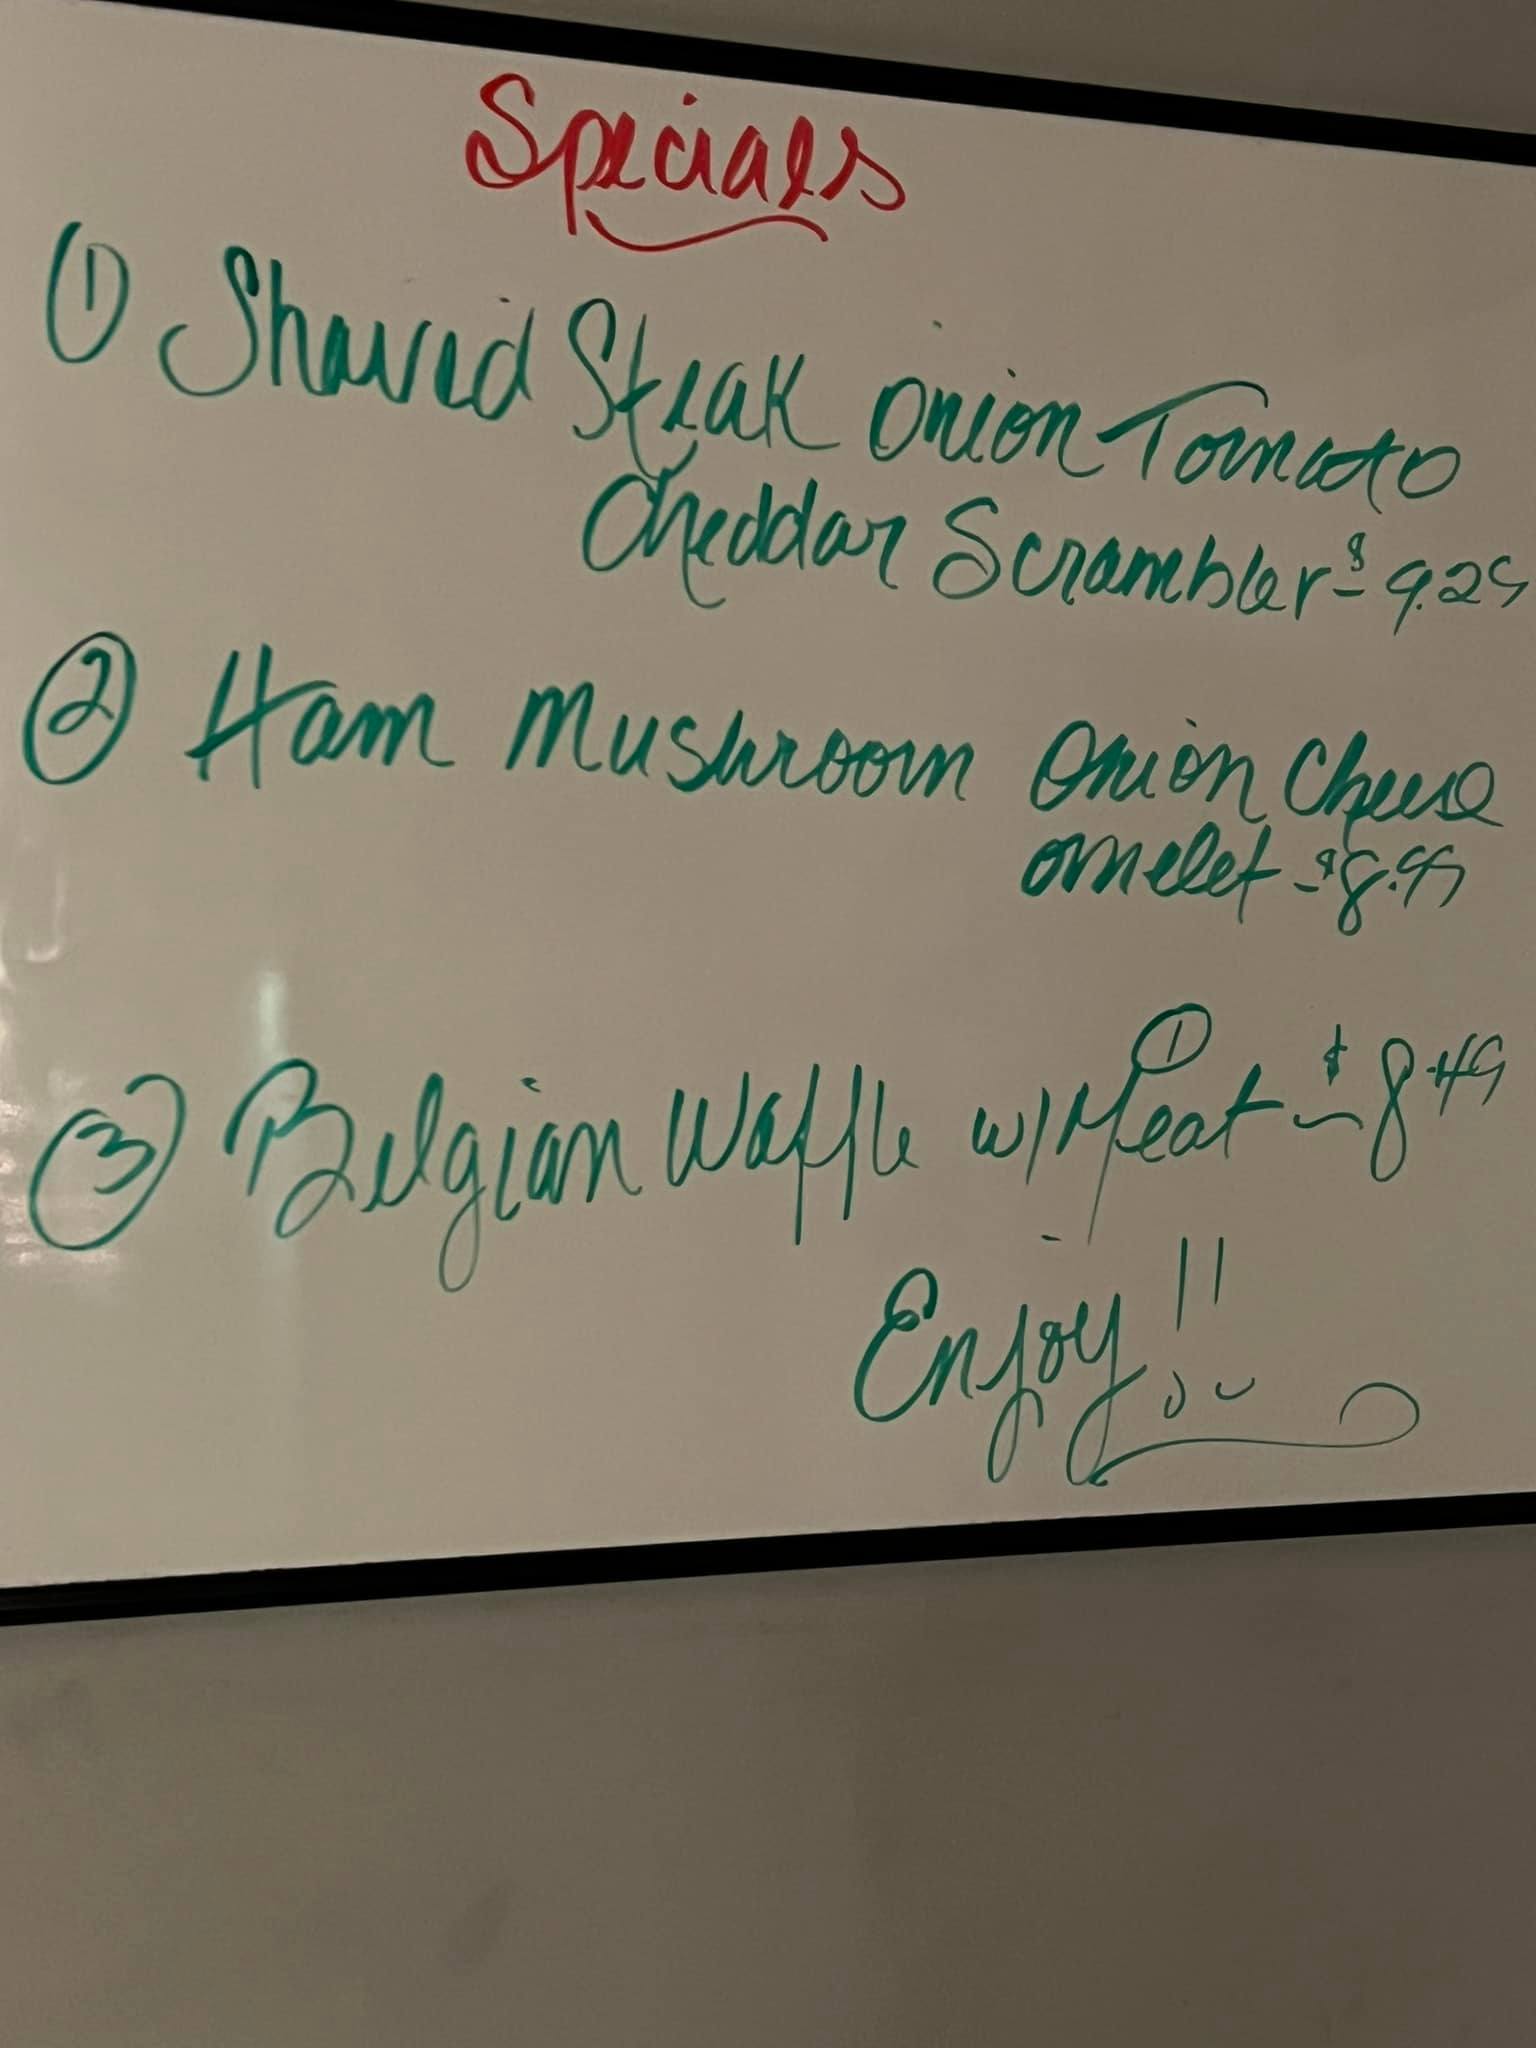 Specials
① Shaved Steak Onion Tomato
Cheddar Scrambler - $9.25
② Ham Mushroom Onion Cheese
omelet - $8.99
③ Belgian Waffle w/Meat - $8.49
Enjoy!!